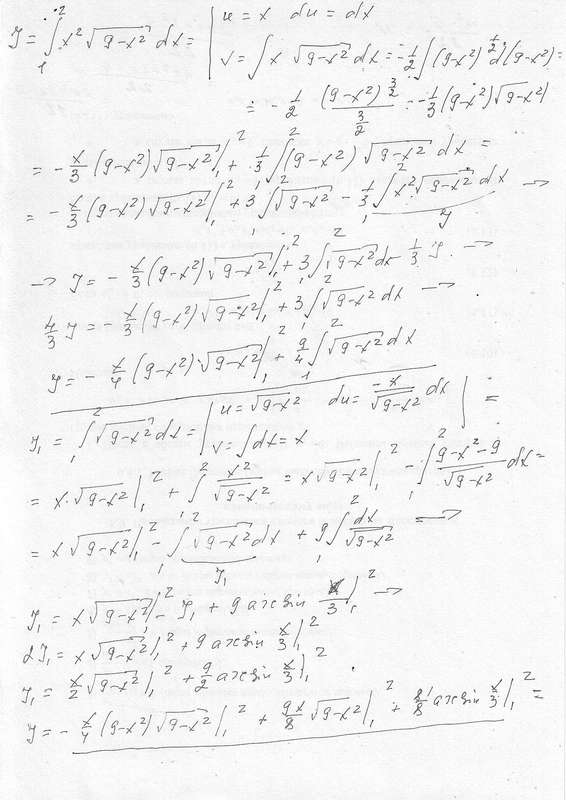 J = ∫₁² x² √(9-x²) dx = | u = x  du = dx
v = ∫ x √(9-x²) dx = -1/2 ∫ (9-x²)^(1/2) d(9-x²) =
= -1/2 (9-x²)^(3/2) / (3/2) = -1/3 (9-x²) √(9-x²)
= -x/3 (9-x²) √(9-x²) |₁² + 1/3 ∫₁² (9-x²) √(9-x²) dx =
= -x/3 (9-x²) √(9-x²) |₁² + 3 ∫₁² √(9-x²) - 1/3 ∫₁² x² √(9-x²) dx →
J
→ J = -x/3 (9-x²) √(9-x²) |₁² + 3 ∫₁² √(9-x²) dx - 1/3 J →
4/3 J = -x/3 (9-x²) √(9-x²) |₁² + 3 ∫₁² √(9-x²) dx →
J = -x/4 (9-x²) √(9-x²) |₁² + 9/4 ∫₁² √(9-x²) dx
J₁ = ∫₁² √(9-x²) dx = | u = √(9-x²)  du = -x/√(9-x²) dx | =
v = ∫ dx = x
= x · √(9-x²) |₁² + ∫₁² x²/√(9-x²) = x √(9-x²) |₁² - ∫₁² (9-x²-9)/√(9-x²) dx =
= x √(9-x²) |₁² - ∫₁² √(9-x²) dx + 9 ∫₁² dx/√(9-x²) ⇒
J₁
J₁ = x √(9-x²) |₁² - J₁ + 9 arcsin x/3 |₁² →
2J₁ = x √(9-x²) |₁² + 9 arcsin x/3 |₁²
J₁ = x/2 √(9-x²) |₁² + 9/2 arcsin x/3 |₁²
J = -x/4 (9-x²) √(9-x²) |₁² + 9x/8 √(9-x²) |₁² + 81/8 arcsin x/3 |₁² =